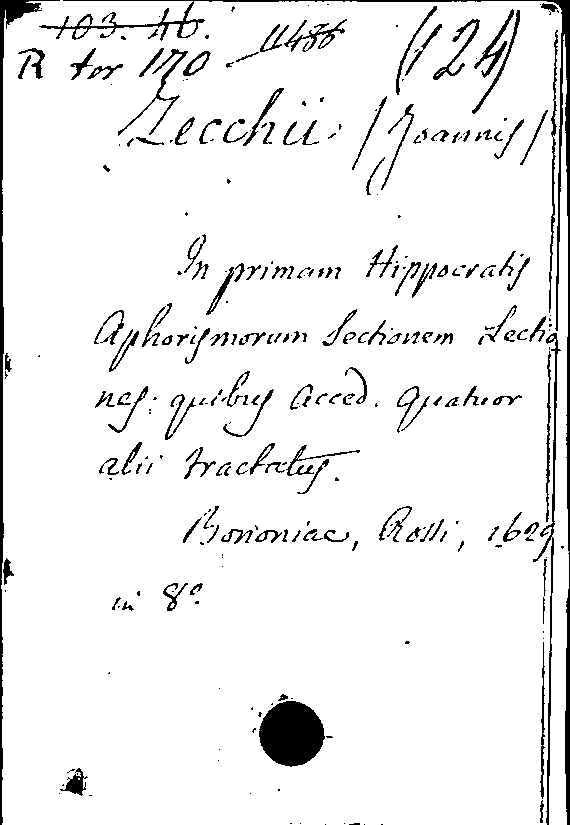 103. 46. 11486 (124)
R tor 170
Zecchii (Joannis)
In primam Hippocratis
Aphorismorum Sectionem Lectio
nes: quibus acced. quatuor
alii tractatus.
Bononiae, Rossi, 1629.
in 8º